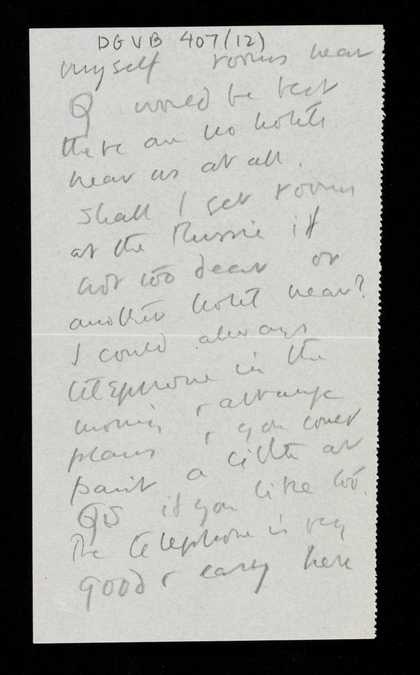 DGVB 407(12)
myself rooms near
Q would be best
there are no hotels
near us at all.
Shall I get rooms
at the Russie if
not too dear or
another hotel near?
I could always
telephone in the
morning & arrange
plans & you could
paint a little at
QS if you like too.
The telephone is very
good & easy here